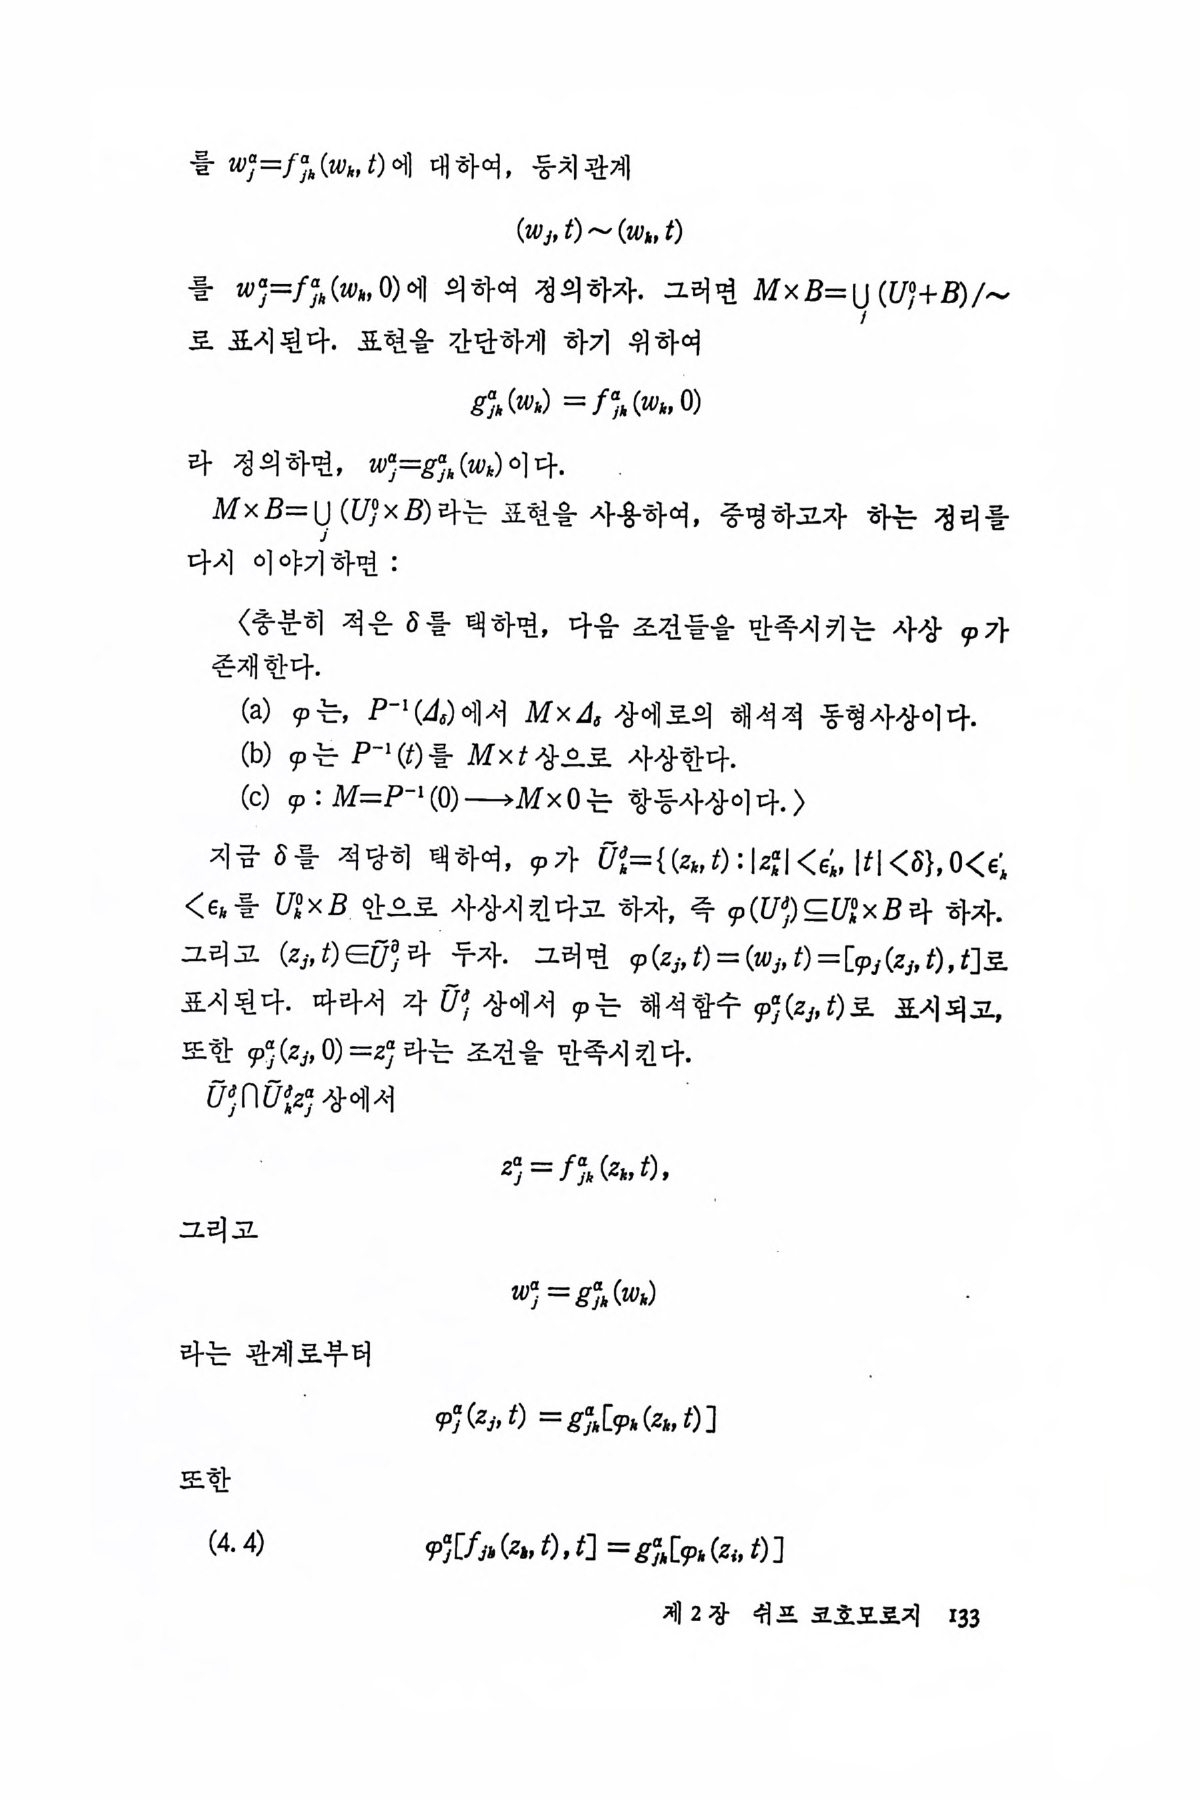 를 $w_j^\alpha=f_{jk}^\alpha(w_k, t)$에 대하여, 동치관계
$(w_j, t)\sim(w_k, t)$
를 $w_j^\alpha=f_{jk}^\alpha(w_k, 0)$에 의하여 정의하자. 그러면 $M\times B=\bigcup_j(U_j^0+B)/\sim$
로 표시된다. 표현을 간단하게 하기 위하여
$g_{jk}^\alpha(w_k)=f_{jk}^\alpha(w_k, 0)$
라 정의하면, $w_j^\alpha=g_{jk}^\alpha(w_k)$이다.
$M\times B=\bigcup_j(U_j^0\times B)$라는 표현을 사용하여, 증명하고자 하는 정리를
다시 이야기하면 :
〈충분히 적은 δ를 택하면, 다음 조건들을 만족시키는 사상 $\varphi$가
존재한다.
(a) $\varphi$는, $P^{-1}(\Delta_\delta)$에서 $M\times\Delta_\delta$ 상에로의 해석적 동형사상이다.
(b) $\varphi$는 $P^{-1}(t)$를 $M\times t$상으로 사상한다.
(c) $\varphi : M=P^{-1}(0)\longrightarrow M\times 0$는 항등사상이다.〉
지금 δ를 적당히 택하여, $\varphi$가 $\tilde{U}_k^\delta=\{(z_k, t) : |z_k^\alpha|<\epsilon_k', |t|<\delta\}, 0<\epsilon_k'$
$<\epsilon_k$를 $U_k^0\times B$ 안으로 사상시킨다고 하자, 즉 $\varphi(U_j^\delta)\subseteq U_k^0\times B$라 하자.
그리고 $(z_j, t)\in\tilde{U}_j^\partial$라 두자. 그러면 $\varphi(z_j, t)=(w_j, t)=[\varphi_j(z_j, t), t]$로
표시된다. 따라서 각 $\tilde{U}_j^\delta$ 상에서 $\varphi$는 해석함수 $\varphi_j^\alpha(z_j, t)$로 표시되고,
또한 $\varphi_j^\alpha(z_j, 0)=z_j^\alpha$라는 조건을 만족시킨다.
$\tilde{U}_j^\delta\cap\tilde{U}_k^\delta z_j^\alpha$ 상에서
$z_j^\alpha=f_{jk}^\alpha(z_k, t),$
그리고
$w_j^\alpha=g_{jk}^\alpha(w_k)$
라는 관계로부터
$\varphi_j^\alpha(z_j, t)=g_{jk}^\alpha[\varphi_k(z_k, t)]$
또한
(4. 4) $\varphi_j^\alpha[f_{jk}(z_k, t), t]=g_{jk}^\alpha[\varphi_k(z_i, t)]$
제 2 장 쉬프 코호모로지 133